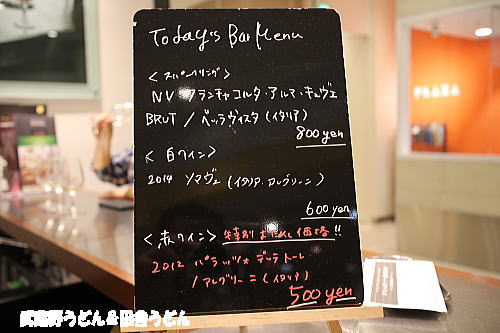 Today's Bar Menu
<スパークリング>
NV フランチャコルタ・アルマ・キュヴェ
BRUT / ベッラヴィスタ (イタリア)
800 yen
<白ワイン>
2014 ソアヴェ (イタリア・アレグリーニ)
600 yen
<赤ワイン> 特別お試し価格!!
2012 パラッツォ・デッラ・トーレ
/ アレグリーニ (イタリア)
500 yen
PLAZA
武蔵野うどん&田舎うどん